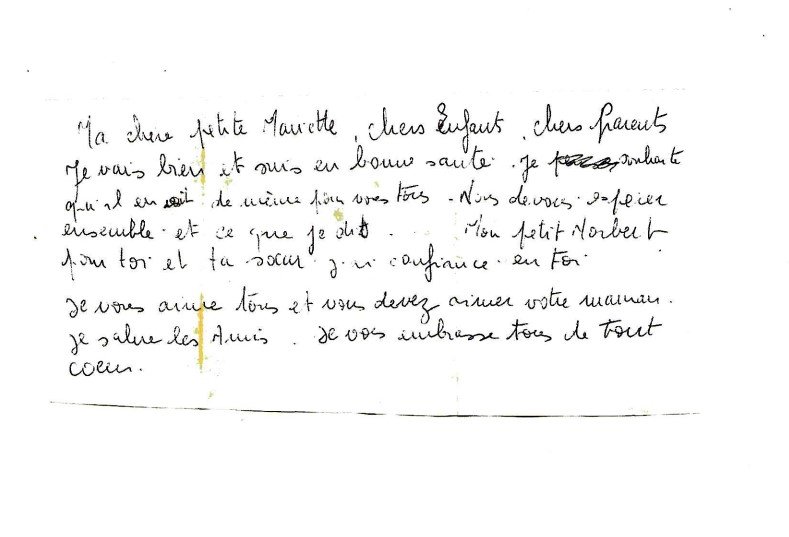 Ma chere petite Mariette, chers Enfant, chers Parents
Je vais bien et suis en bonne sante. Je souhaite
qu'il en soit de même pour vous tous. Nous devons esperer
ensemble et ce que je dit. Mon petit Norbert
pour toi et ta soeur j'ai confiance en toi
Je vous aime tous et vous devez aimer votre maman.
Je salue les Amis. Je vous embrasse tous de tout
coeur.